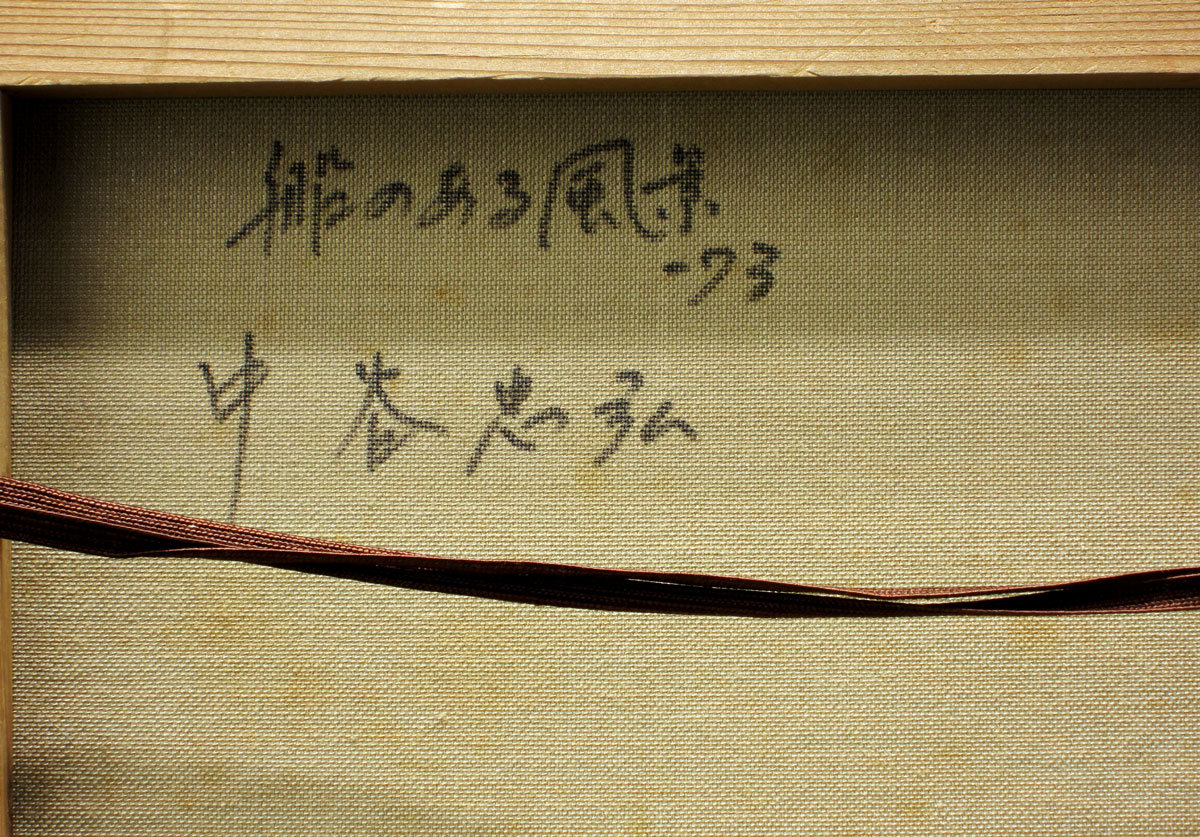 のある風景
-73
中谷忠弘